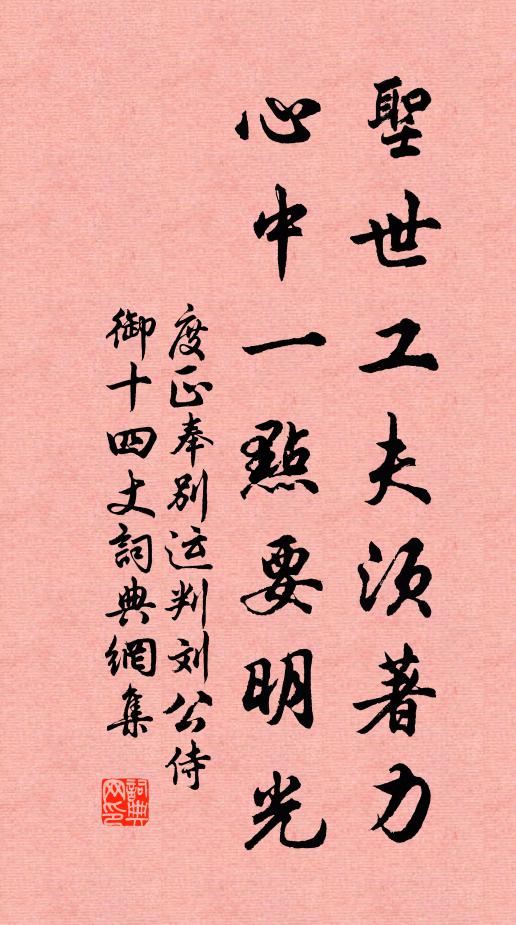 聖世工夫須著力
心中一點要明光
度正奉别运判刘公侍
御十四丈詞典網集
詞典
网印